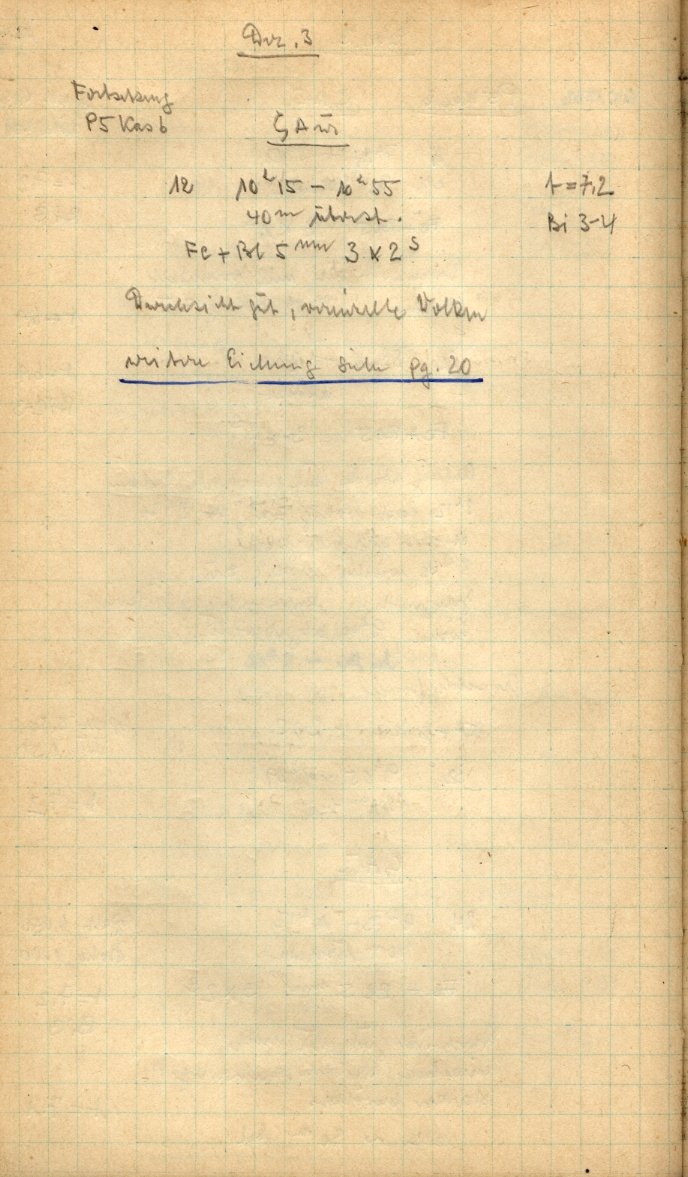 Dez. 3
Fortsetzung
P5 Kas b
ζ Aur
12 10ʰ15 – 10ʰ55 t = 7,2
40ᵐ überst. Bi 3-4
Fe + Bl 5 mm 3 x 2ˢ
Durchsicht gut, vereinzelte Wolken
weitere Eichung siehe pg. 20